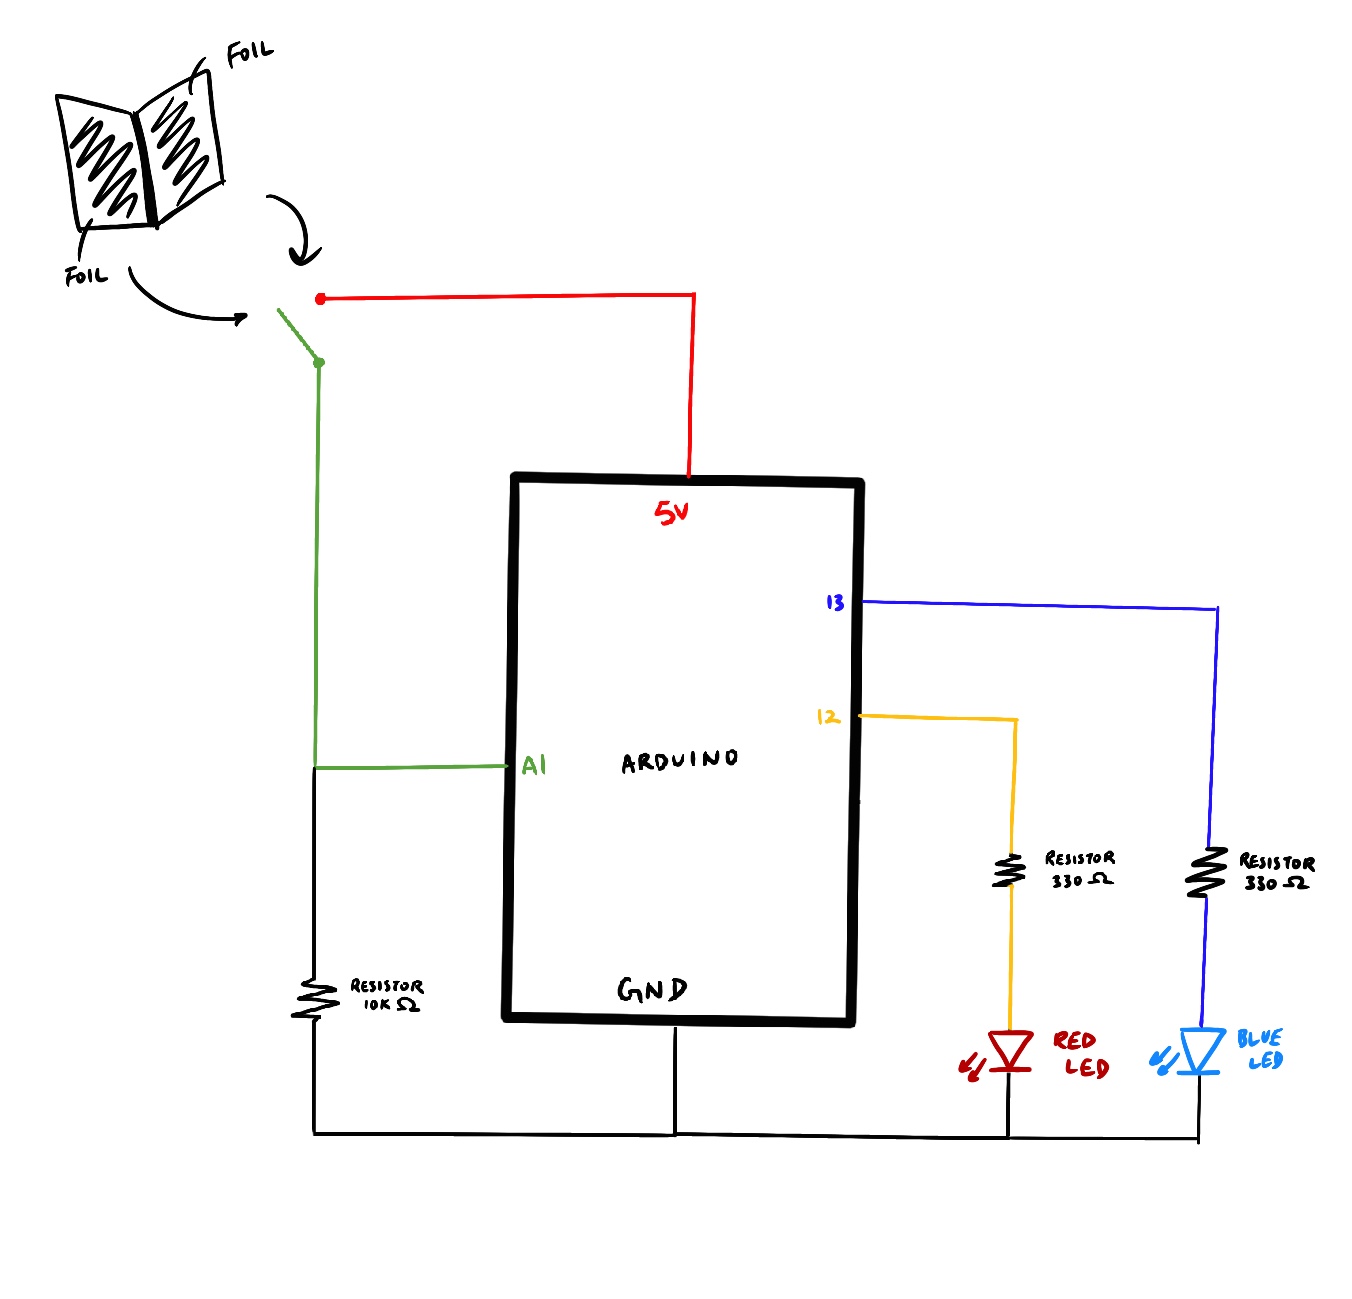 FOIL
FOIL
5V
13
12
A1
ARDUINO
RESISTOR
330 Ω
RESISTOR
330 Ω
GND
RESISTOR
10K Ω
RED
LED
BLUE
LED